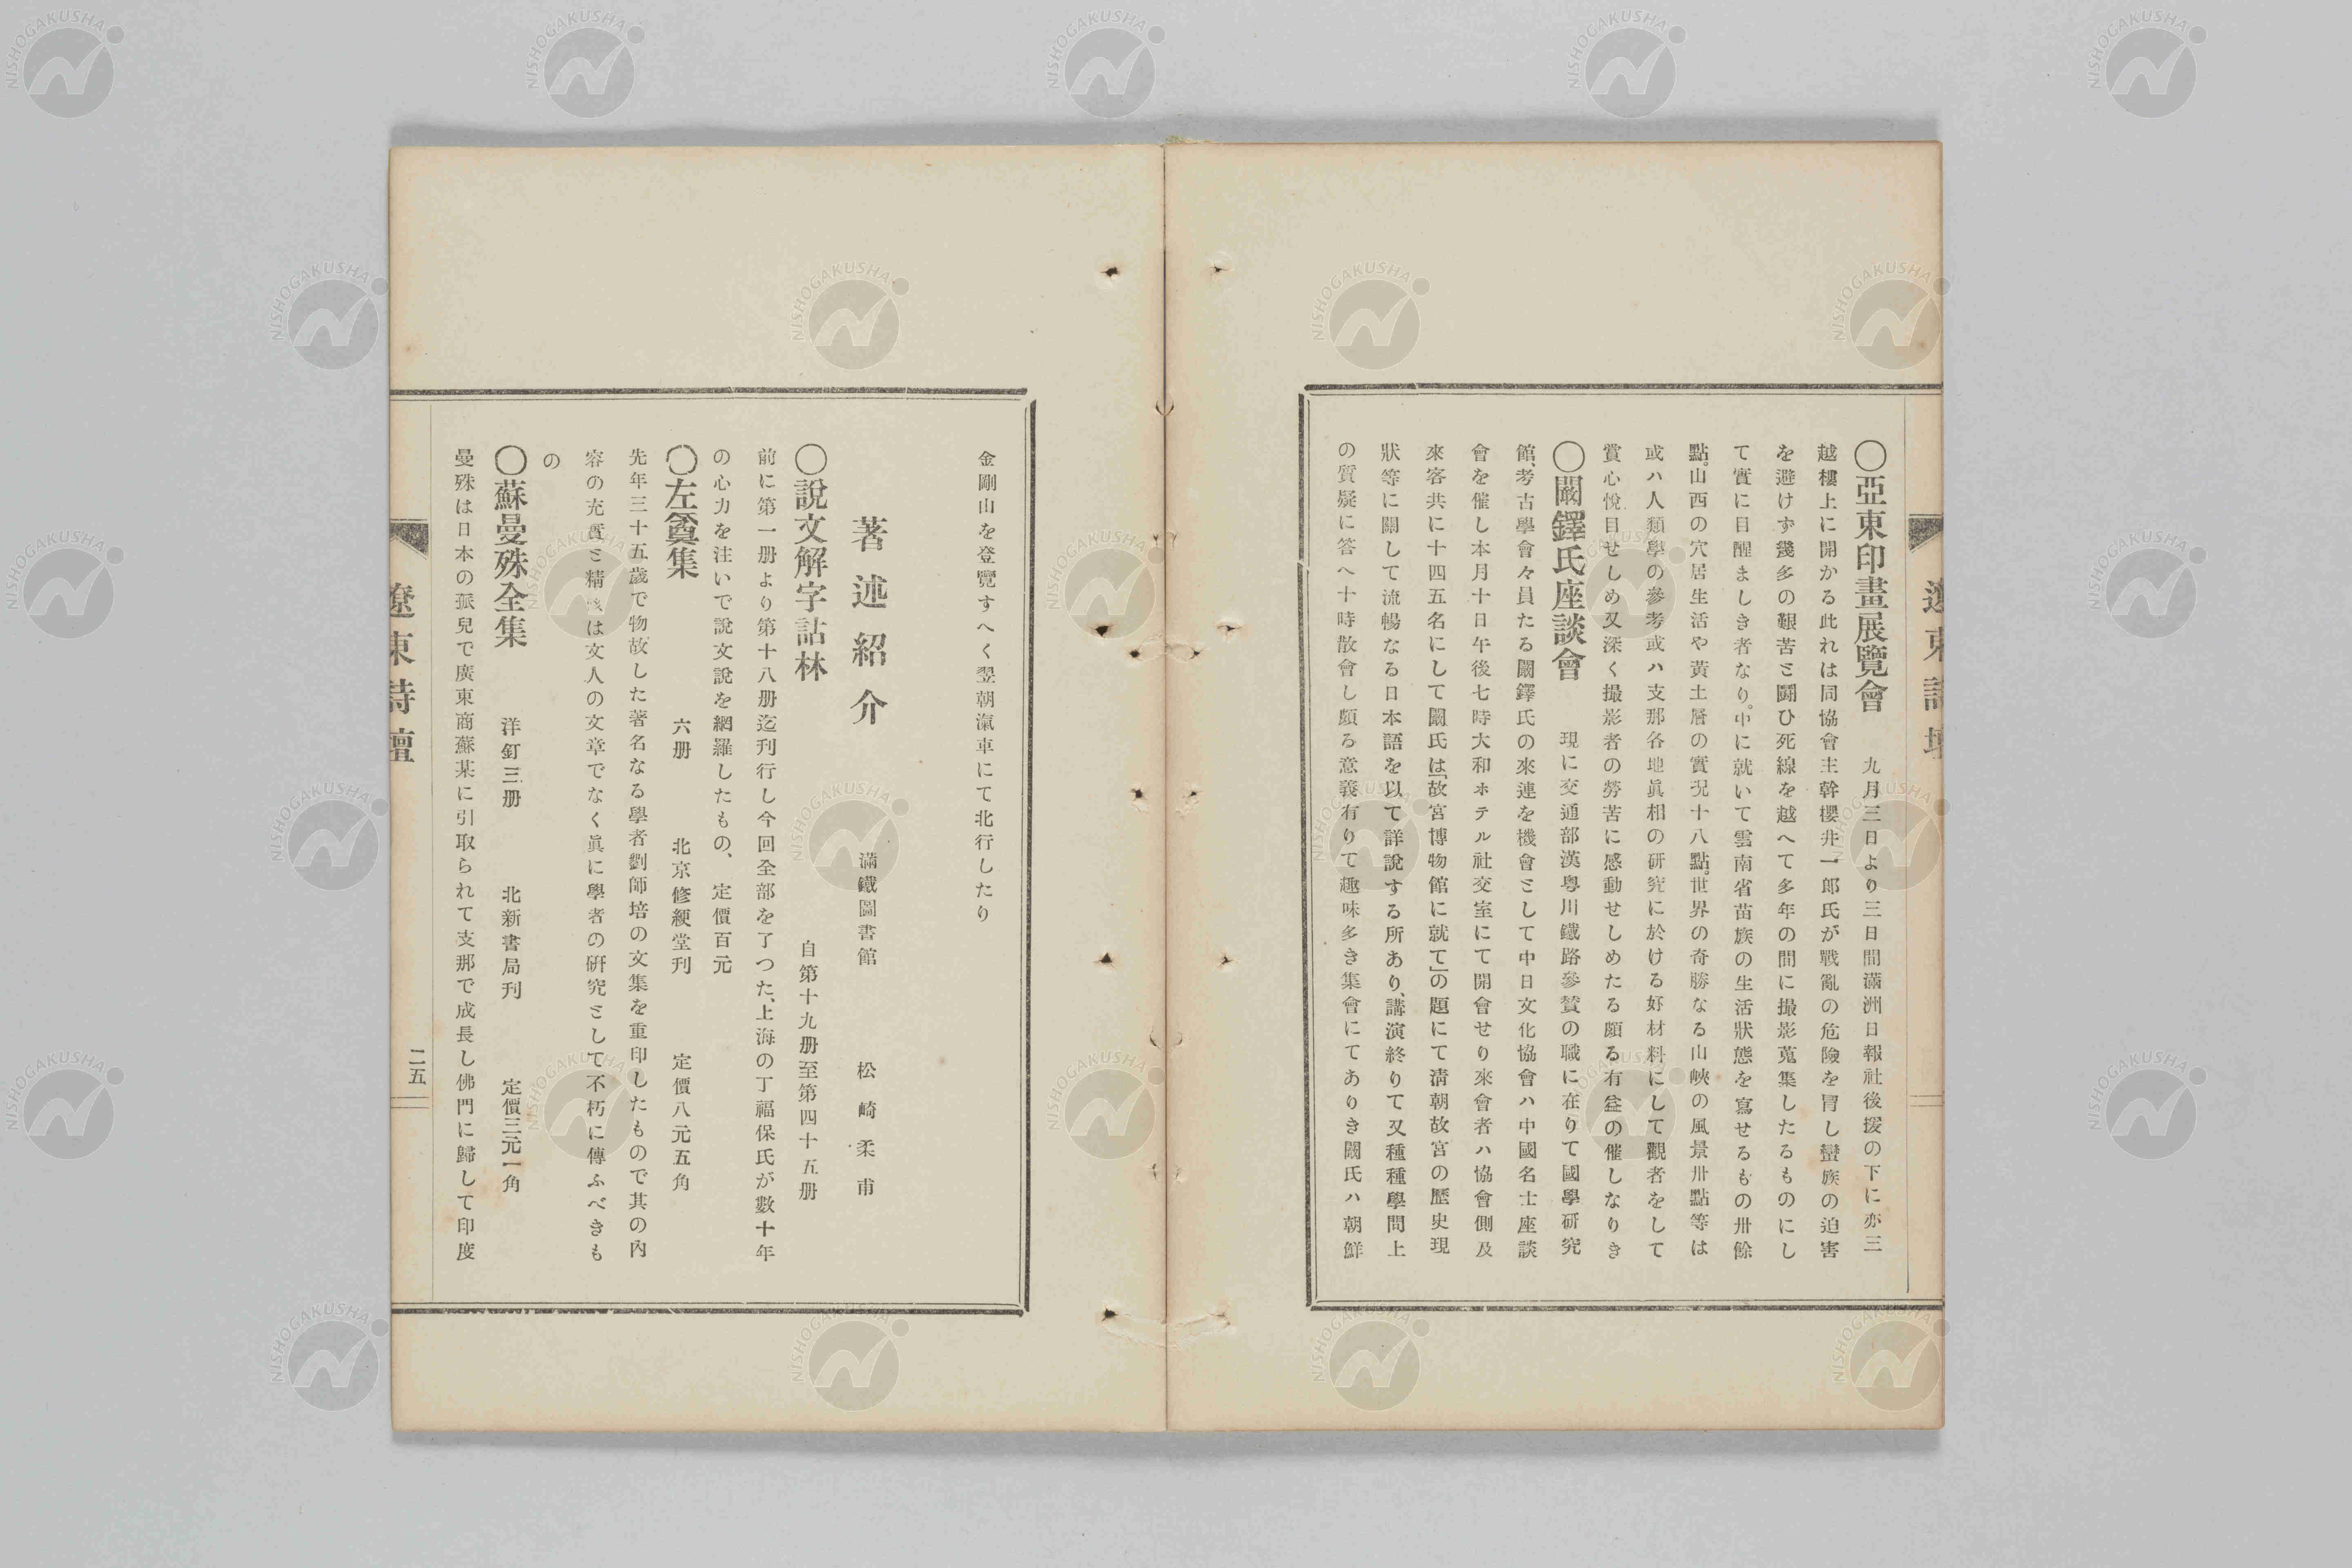 遼東詩壇
〇亞東印畫展覽會　九月三日より三日間滿洲日報社後援の下に亦三
越樓上に開かる此れは同協會主幹櫻井一郎氏が戰亂の危險を冐し蠻族の迫害
を避けず幾多の艱苦と鬪ひ死線を越へて多年の間に撮影蒐集したるものにし
て實に目醒ましき者なり。中に就いて雲南省苗族の生活狀態を寫せるもの卅餘
點。山西の穴居生活や黃土層の實況十八點。世界の奇勝なる山峽の風景卅點等は
或ハ人類學の參考或ハ支那各地眞相の硏究に於ける好材料にして觀者をして
賞心悅目せしめ又深く撮影者の勞苦に感動せしめたる頗る有益の催しなりき
〇闞鐸氏座談會　現に交通部漢粤川鐵路參贊の職に在りて國學硏究
館、考古學會々員たる闞鐸氏の來連を機會として中日文化協會ハ中國名士座談
會を催し本月十日午後七時大和ホテル社交室にて開會せり來會者ハ協會側及
來客共に十四五名にして闞氏は「故宮博物館に就て」の題にて淸朝故宮の歷史現
狀等に關して流暢なる日本語を以て詳說する所あり、講演終りて又種種學問上
の質疑に答へ十時散會し頗る意義有りて趣味多き集會にてありき闞氏ハ朝鮮
金剛山を登覽すへく翌朝滊車にて北行したり
著述紹介　滿鐵圖書館　松崎柔甫
〇說文解字詁林　自第十九册至第四十五册
前に第一册より第十八册迄刋行し今回全部を了つた、上海の丁福保氏が數十年
の心力を注いで說文說を網羅したもの、定價百元
〇左盦集　六册　北京修綆堂刋　定價八元五角
先年三十五歲で物故した著名なる學者劉師培の文集を重印したもので其の內
容の充實と精核は文人の文章でなく眞に學者の硏究として不朽に傳ふべきも
の
〇蘇曼殊全集　洋釘三册　北新書局刋　定價三元一角
曼殊は日本の孤兒で廣東商蘇某に引取られて支那で成長し佛門に歸して印度
遼東詩壇
二五
NISHOGAKUSHA